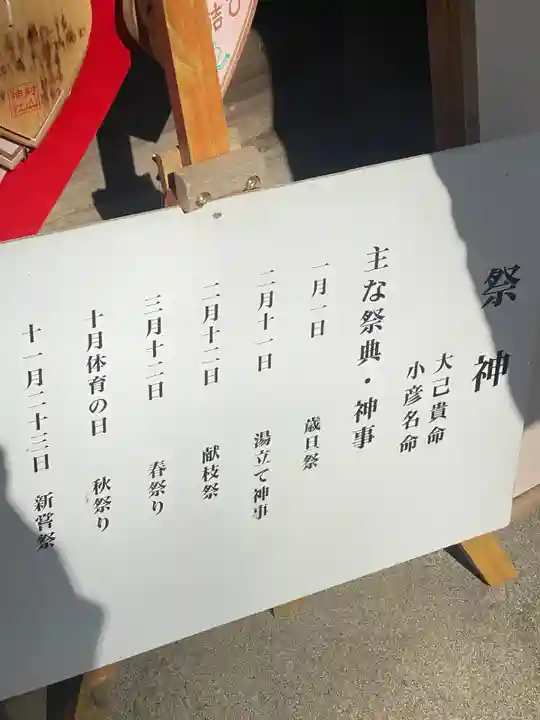 祭神
大己貴命
小彦名命
主な祭典・神事
一月一日 歳旦祭
二月十一日 湯立て神事
二月十二日 献枝祭
三月十二日 春祭り
十月体育の日 秋祭り
十一月二十三日 新嘗祭
結び